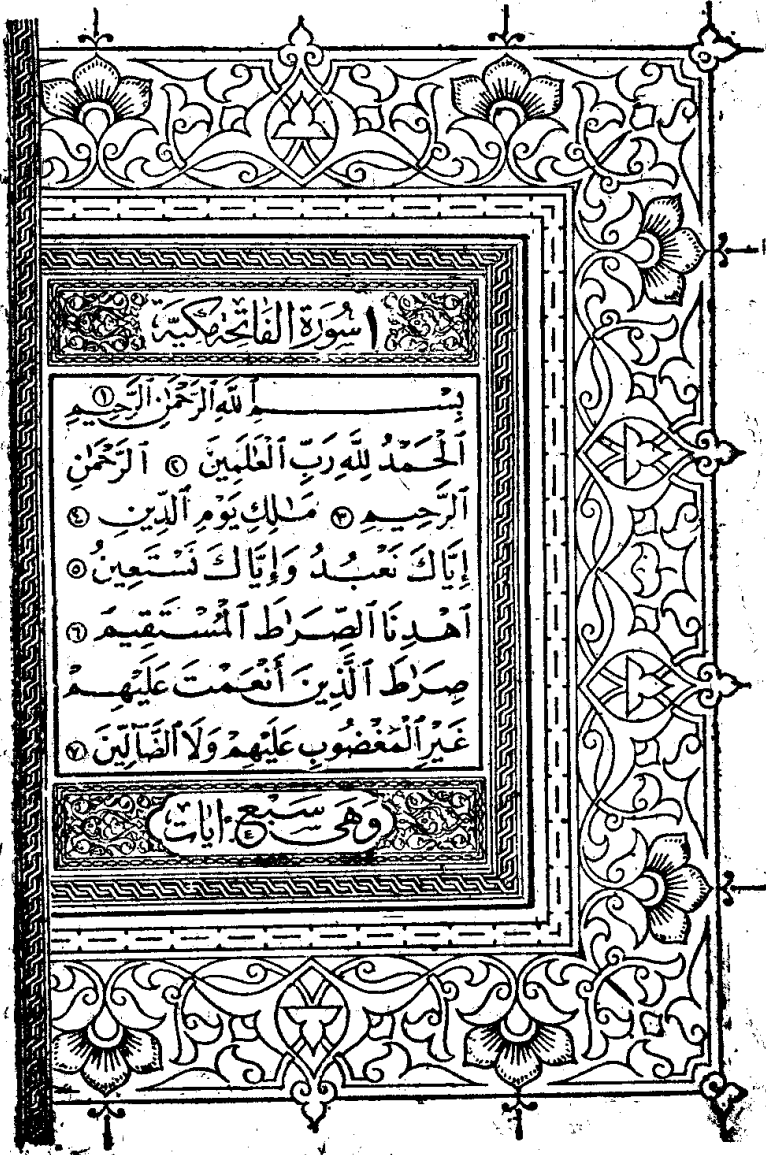 ١ سُورَة الفَاتِحَة مكيّة
بِسْمِ ٱللَّهِ ٱلرَّحْمَٰنِ ٱلرَّحِيمِ ١
ٱلْحَمْدُ لِلَّهِ رَبِّ ٱلْعَٰلَمِينَ ٢ ٱلرَّحْمَٰنِ
ٱلرَّحِيمِ ٣ مَٰلِكِ يَوْمِ ٱلدِّينِ ٤
إِيَّاكَ نَعْبُدُ وَإِيَّاكَ نَسْتَعِينُ ٥
ٱهْدِنَا ٱلصِّرَٰطَ ٱلْمُسْتَقِيمَ ٦
صِرَٰطَ ٱلَّذِينَ أَنْعَمْتَ عَلَيْهِمْ
غَيْرِ ٱلْمَغْضُوبِ عَلَيْهِمْ وَلَا ٱلضَّآلِّينَ ٧
وَهَي سَبْع ءايَات